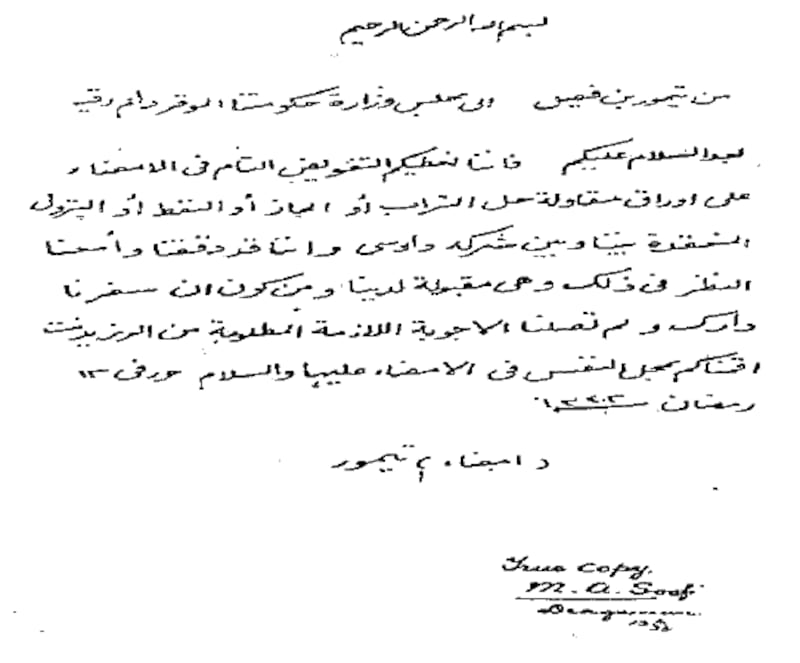 بسم الله الرحمن الرحيم
من تيمور بن فيصل الى مجلس وزارة حكومتنا الموقر دام رقيه
بعد السلام عليكم فاننا نعطيكم التفويض التام فى الامضاء
على اوراق مقاولة حل التراب أو الجاز أو النفط أو البترول
المنعقدة بيننا وبين شركة دارسى واننا قد دققنا وأمعنا
النظر فى ذلك وهى مقبولة لدينا ومن كون ان سفرنا
دارك ولم تصلنا الاجوبة اللازمة المطلوبة من الرزيدنت
اقمناكم محل النفس فى الامضاء عليها والسلام حرر فى ١٣
رمضان
امضاء تيمور
True Copy.
M. A. Soofi